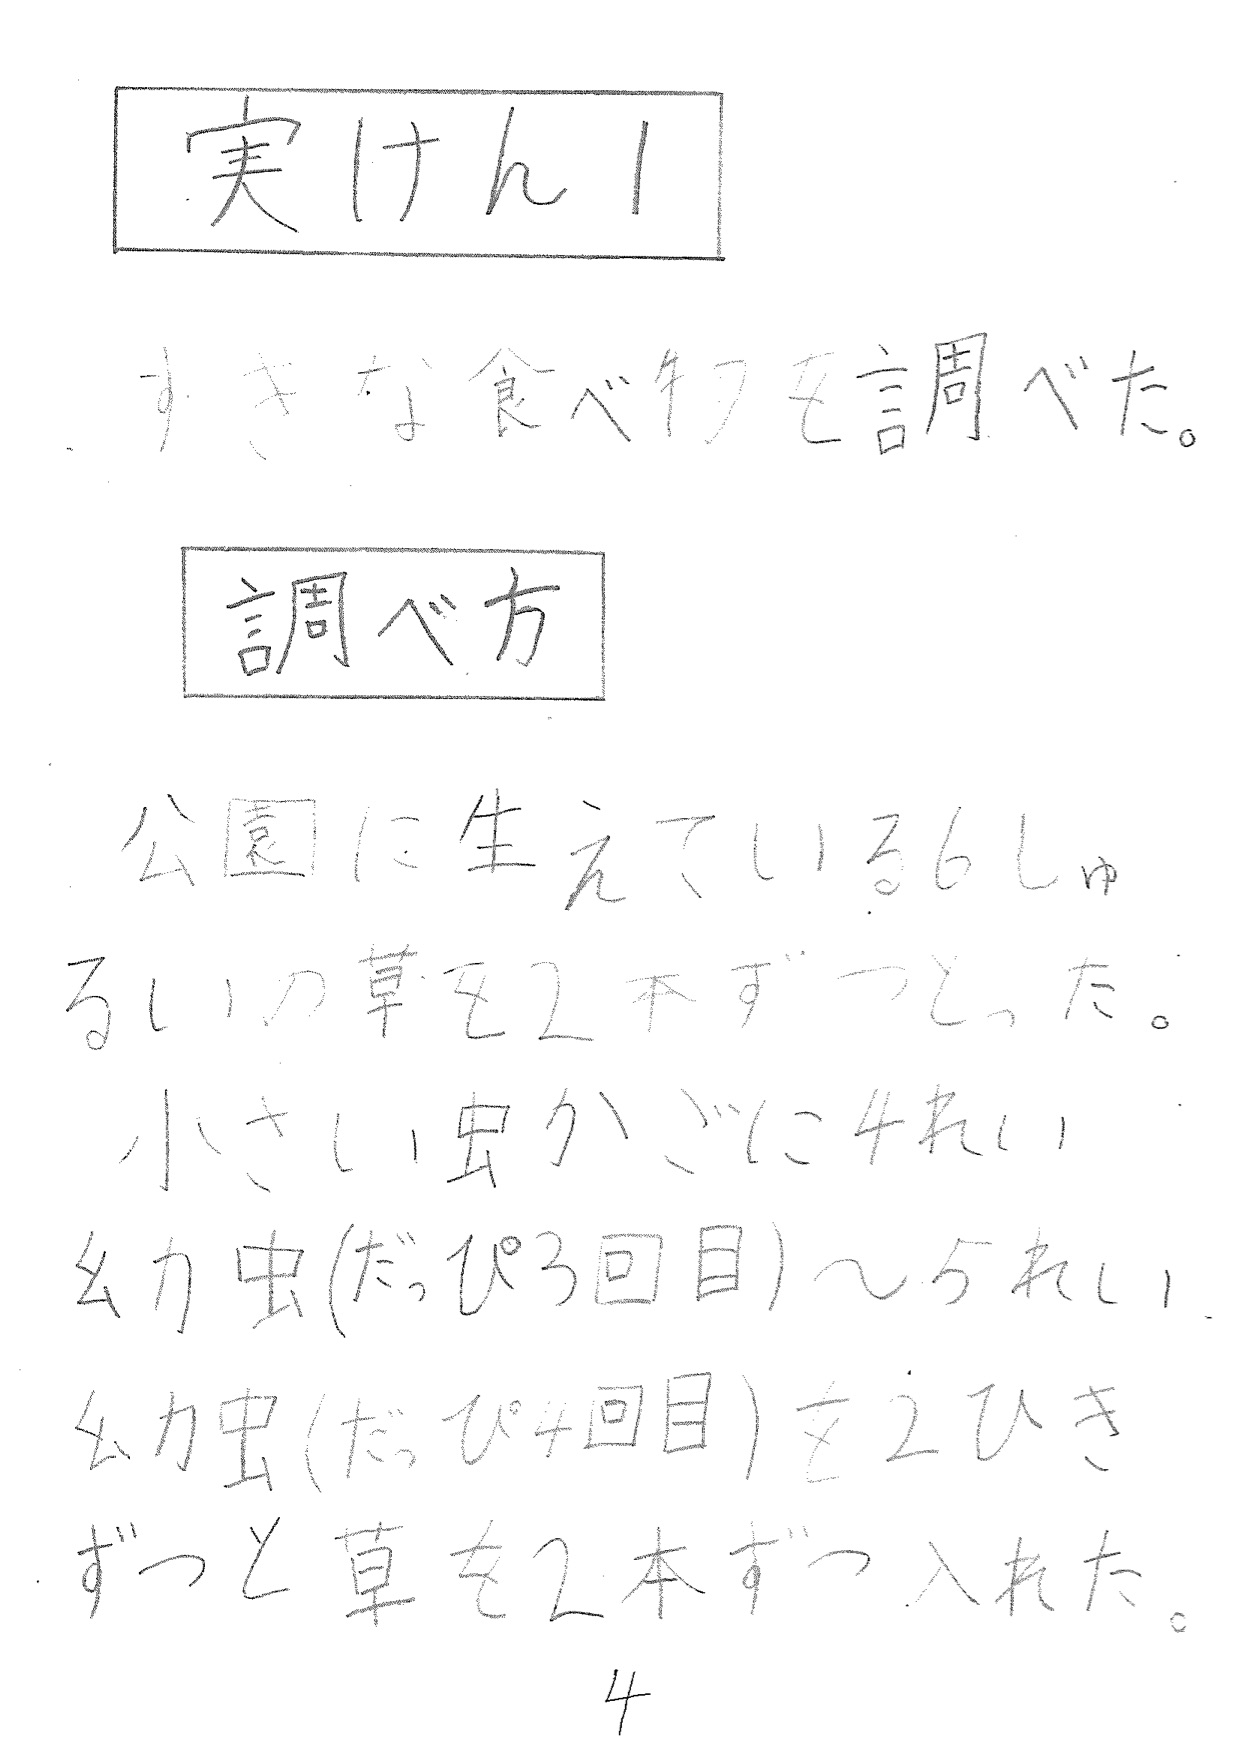 実けん1
すきな食べ物を調べた。
調べ方
公園に生えている6しゅ
るいの草を2本ずつとった。
小さい虫かごに4れい
幼虫(だっぴ3回目)〜5れい
幼虫(だっぴ4回目)を2ひき
ずつと草を2本ずつ入れた。
4